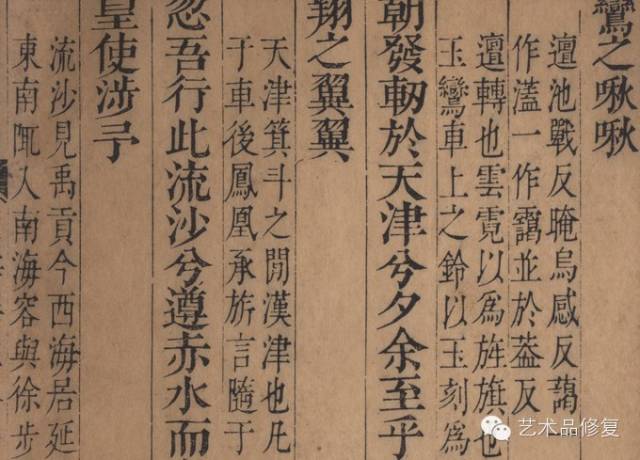 鸞之啾啾
邅池戰反晻烏感反藹一
作濭一作靄並於葢反
邅轉也雲霓以爲旌旗也
玉鸞車上之鈴以玉刻爲
朝發軔於天津兮夕余至乎
翔之翼翼
天津箕斗之閒漢津也凡
于車後鳳凰承旂言隨于
忽吾行此流沙兮遵赤水而
皇使涉予
流沙見禹貢今西海居延
東南陬入南海容與徐步
艺术品修复